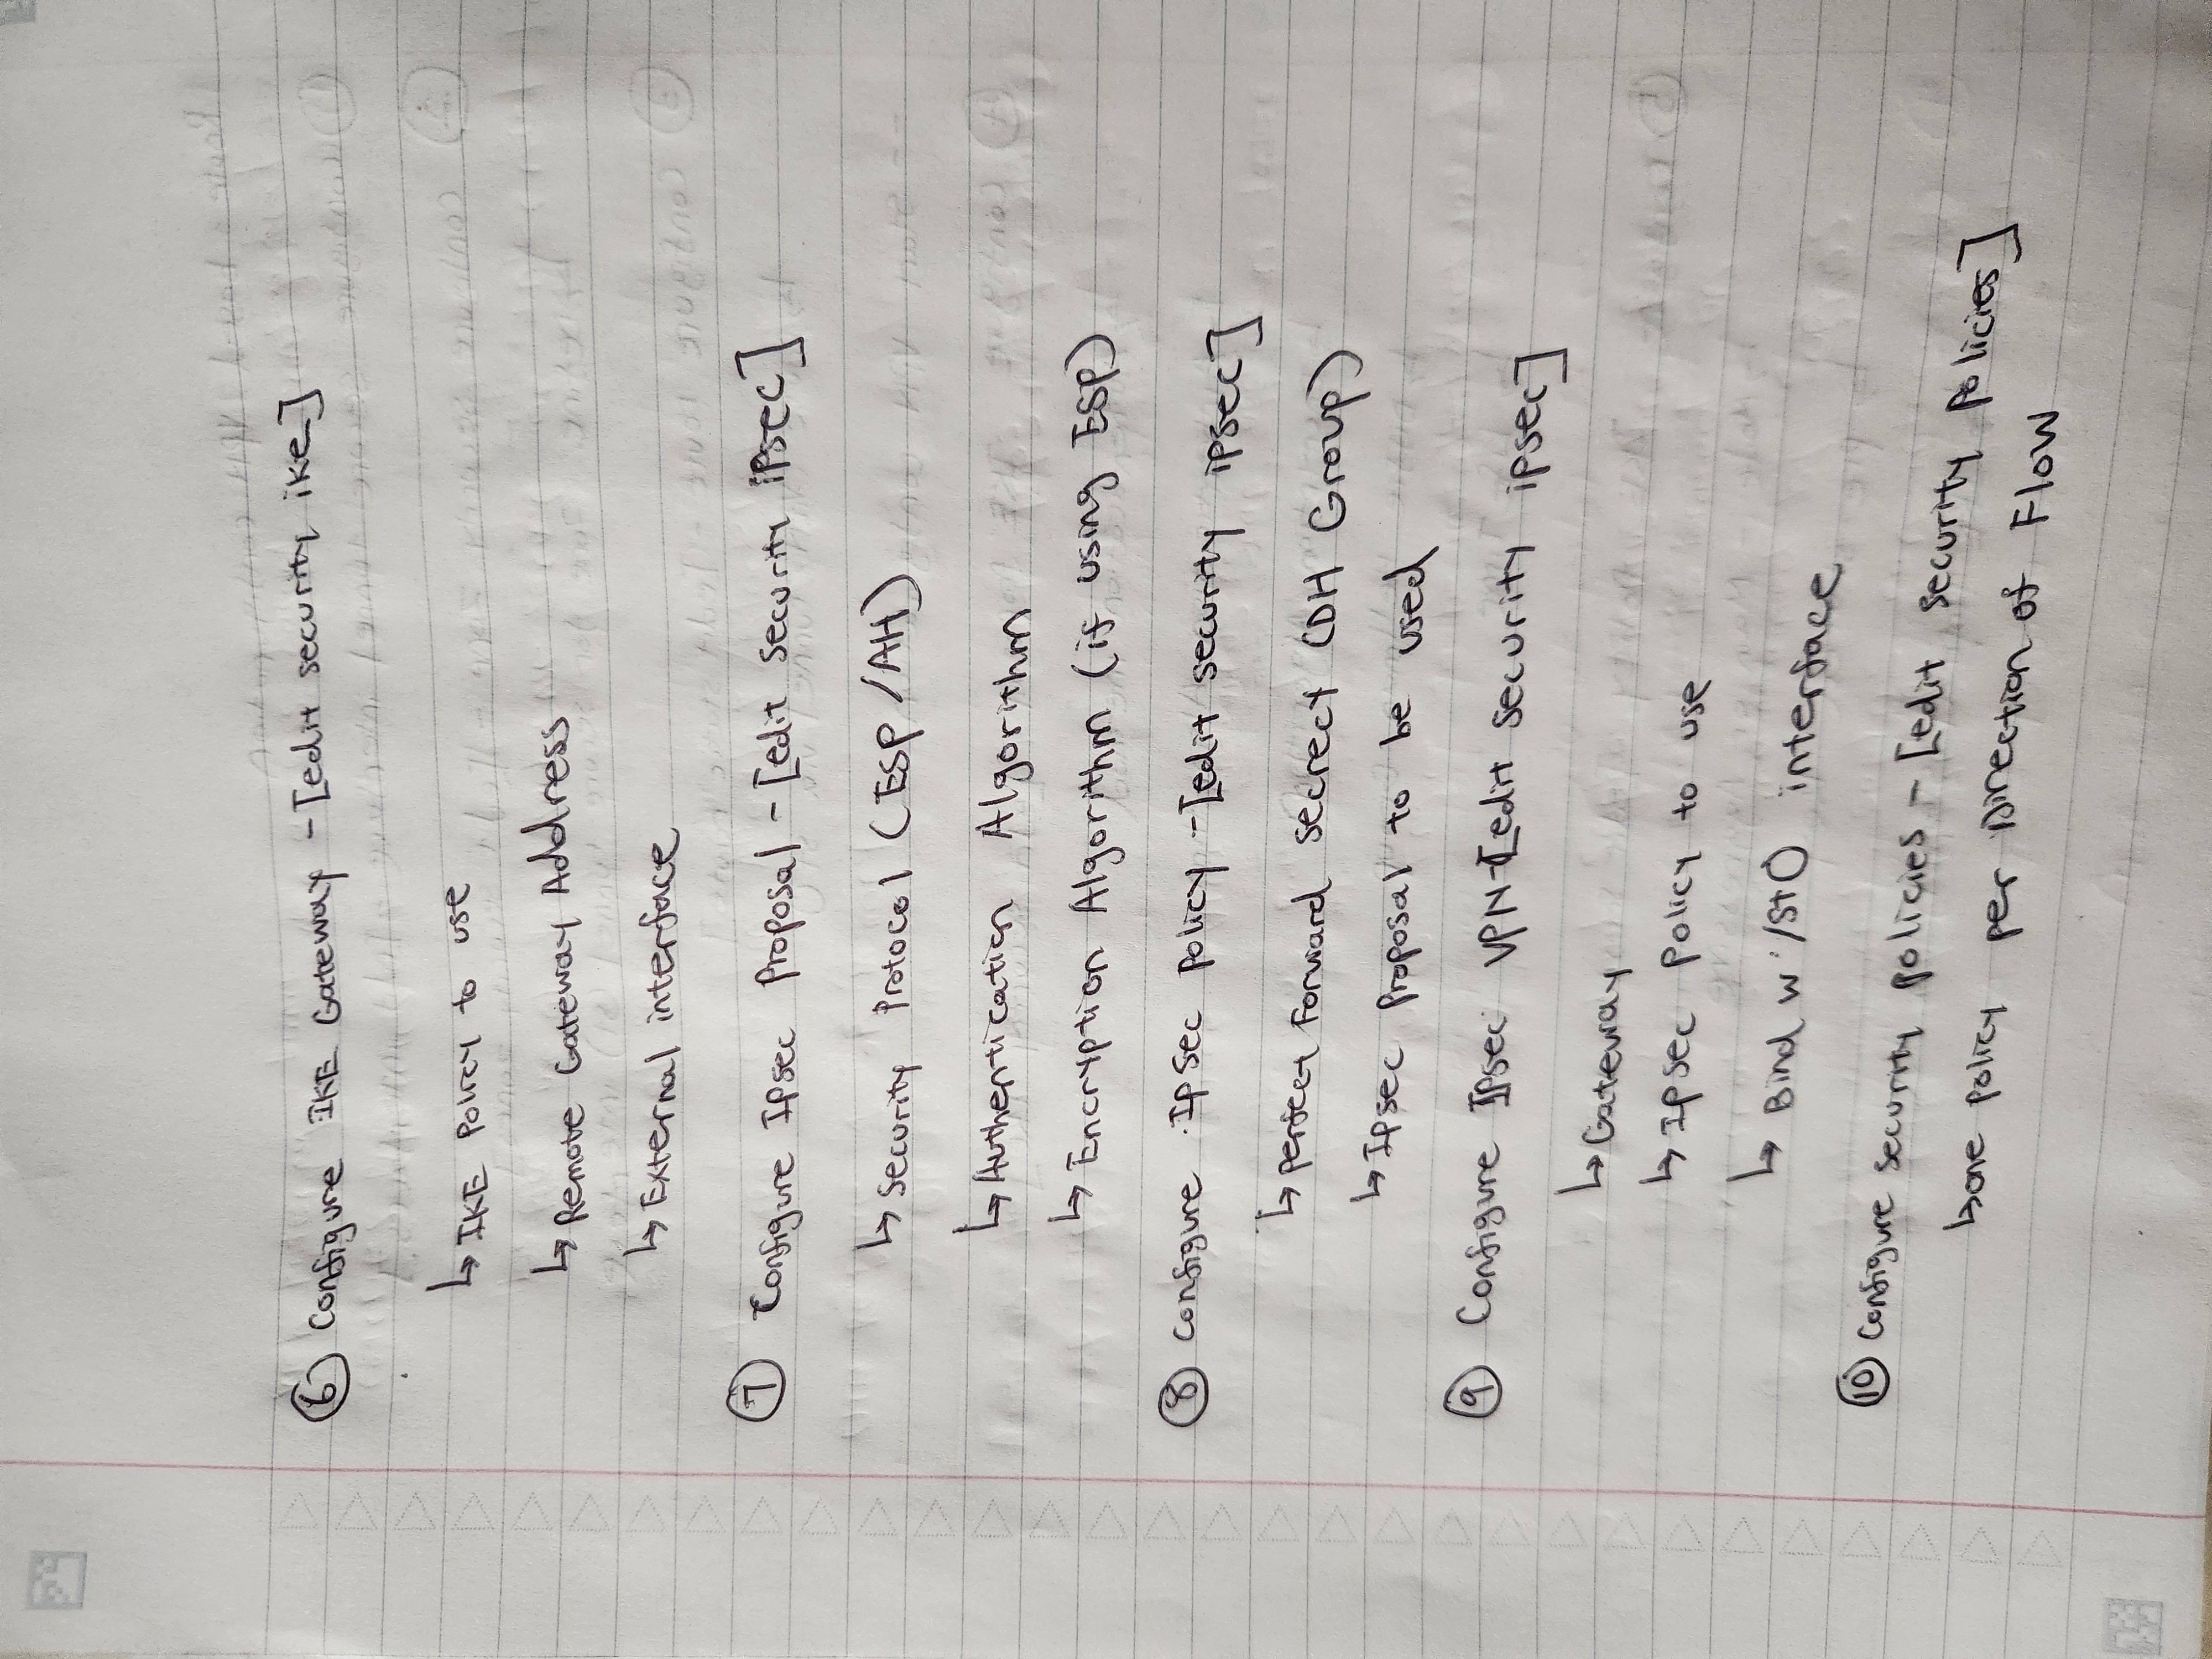 ⑥ Configure IKE Gateway - [edit security ike]
↳ IKE Policy to use
↳ Remote Gateway Address
↳ External interface
⑦ Configure Ipsec Proposal - [edit security ipsec]
↳ Security Protocol (ESP/AH)
↳ Authentication Algorithm
↳ Encryption Algorithm (if using ESP)
⑧ Configure Ipsec Policy - [edit security ipsec]
↳ Perfect Forward Secrecy (DH Group)
↳ Ipsec Proposal to be used
⑨ Configure Ipsec VPN - [edit security ipsec]
↳ Gateway
↳ Ipsec Policy to use
↳ Bind w/ st0 interface
⑩ Configure security policies - [edit security policies]
↳ one policy per Direction of Flow